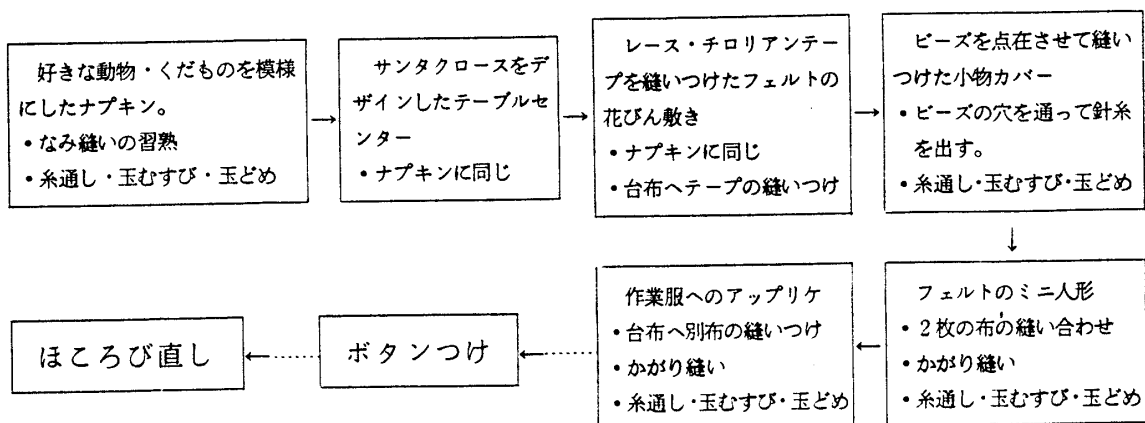 好きな動物・くだものを模様
にしたナプキン。
・なみ縫いの習熟
・糸通し・玉むすび・玉どめ
サンタクロースをデ
ザインしたテーブルセ
ンター
・ナプキンに同じ
レース・チロリアンテー
プを縫いつけたフェルトの
花びん敷き
・ナプキンに同じ
・台布へテープの縫いつけ
ビーズを点在させて縫い
つけた小物カバー
・ビーズの穴を通って針糸
を出す。
・糸通し・玉むすび・玉どめ
フェルトのミニ人形
・2枚の布の縫い合わせ
・かがり縫い
・糸通し・玉むすび・玉どめ
作業服へのアップリケ
・台布へ別布の縫いつけ
・かがり縫い
・糸通し・玉むすび・玉どめ
ボタンつけ
ほころび直し